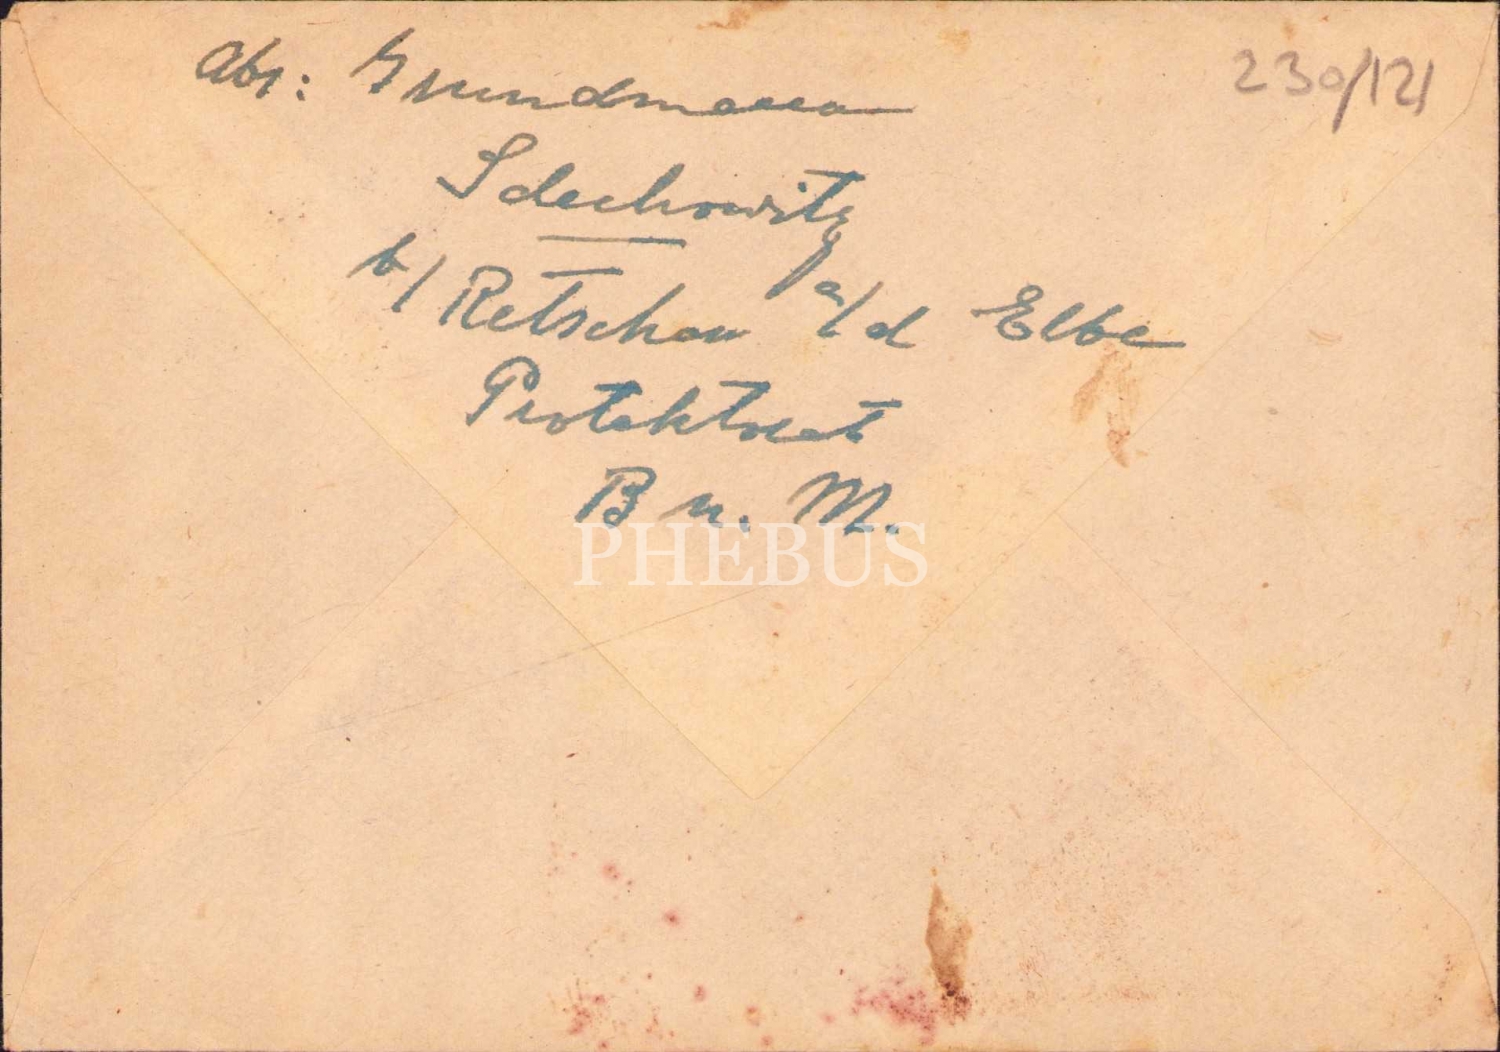 Abs: Grundmann
230/121
Sdechowitz
b/ Retschow a/d Elbe
Protektorat
B u. M.
PHEBUS